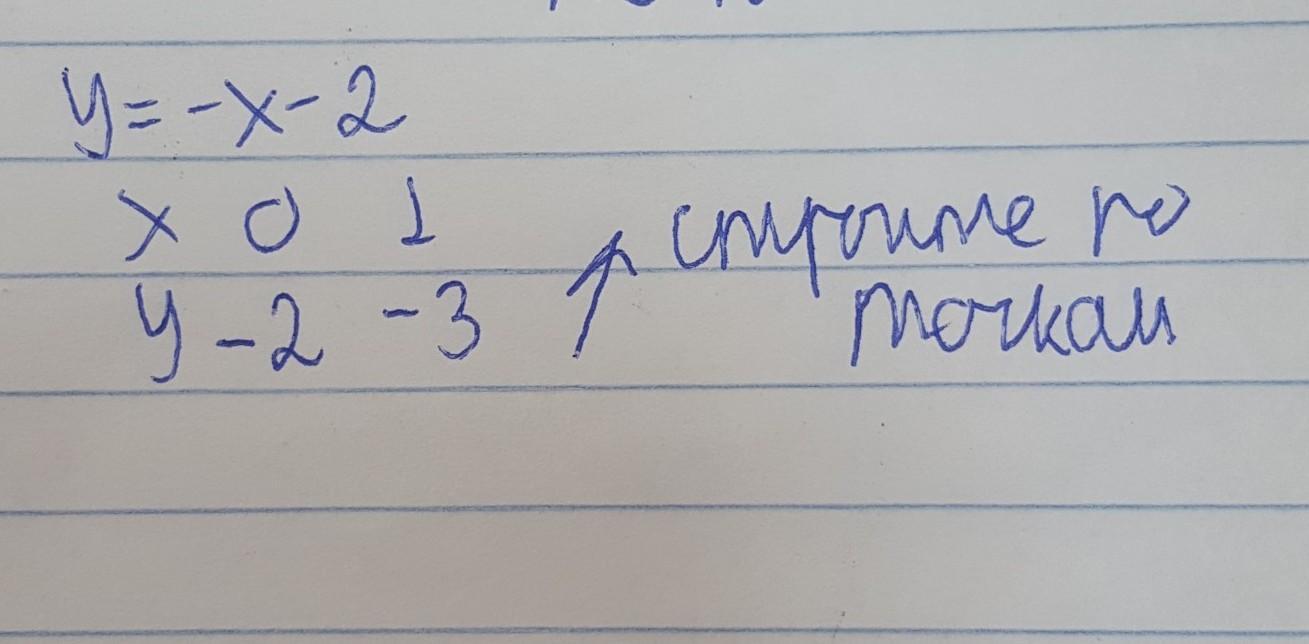 y = -x - 2
x 0 1
y -2 -3 ↑ строите по
точкам